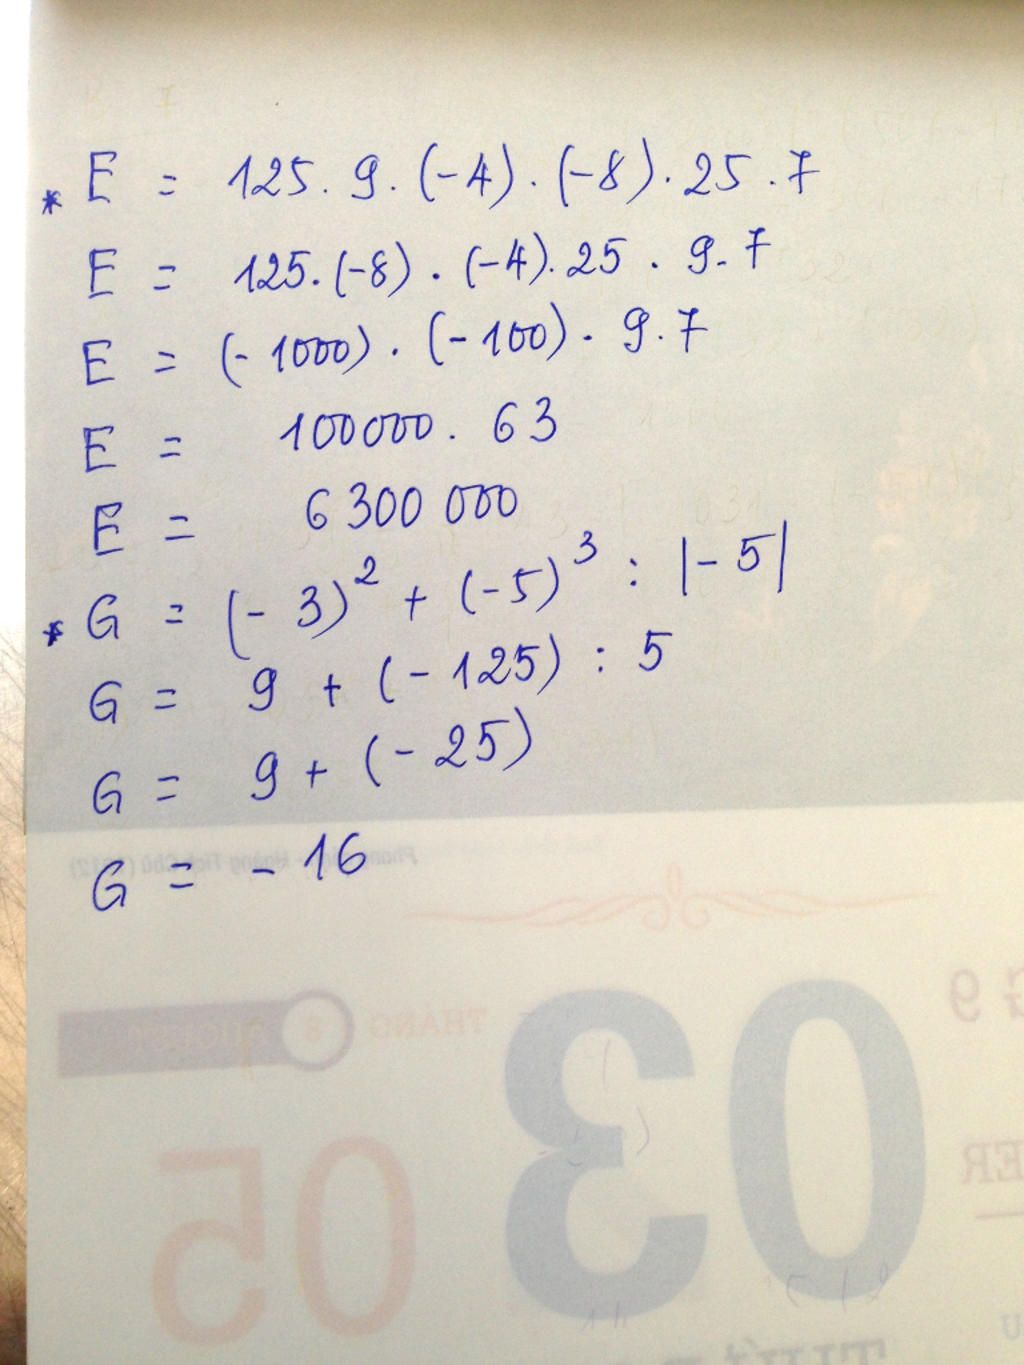 * E = 125. 9. (-4). (-8). 25. 7
E = 125. (-8). (-4). 25. 9. 7
E = (-1000). (-100). 9. 7
E = 100000. 63
E = 6300 000
* G = (-3)² + (-5)³ : |-5|
G = 9 + (-125) : 5
G = 9 + (-25)
G = -16
THÁNG 8
G 9
03
05